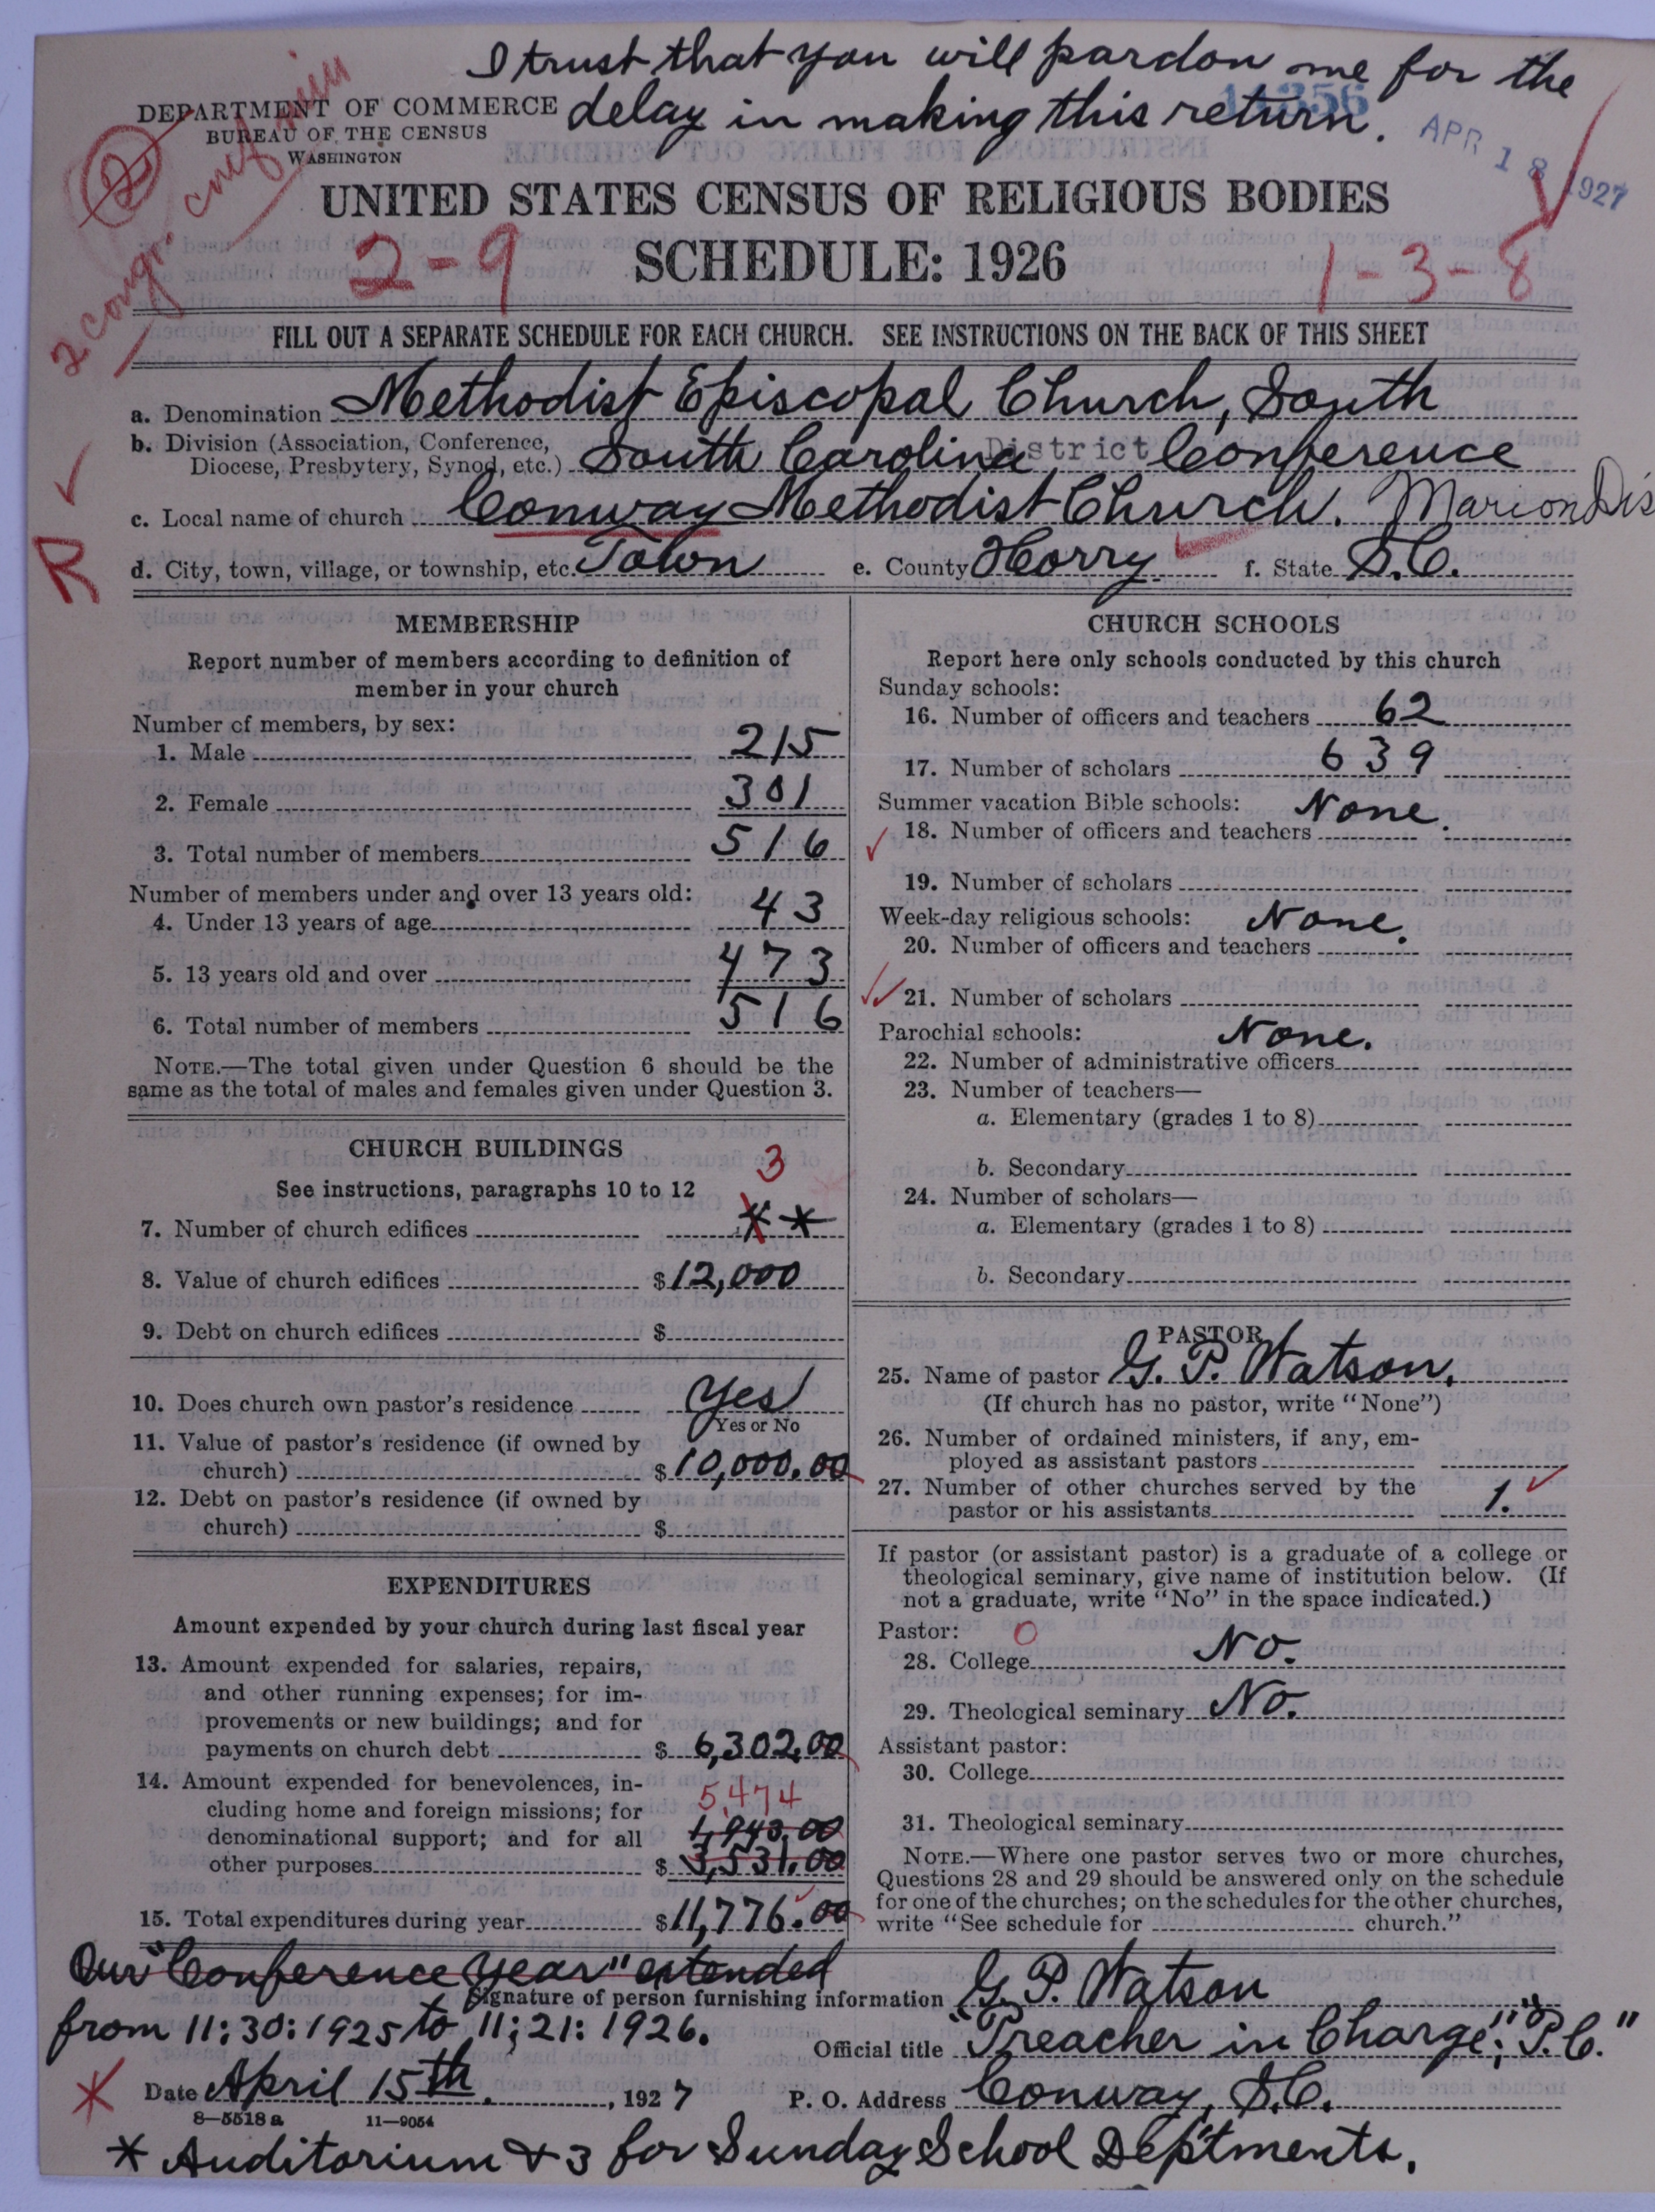 I trust that you will pardon me for the
delay in making this return.
14356
APR 18 1927
DEPARTMENT OF COMMERCE
BUREAU OF THE CENSUS
WASHINGTON
2 cong.
UNITED STATES CENSUS OF RELIGIOUS BODIES
2-9 SCHEDULE: 1926 1-3-8
FILL OUT A SEPARATE SCHEDULE FOR EACH CHURCH. SEE INSTRUCTIONS ON THE BACK OF THIS SHEET
a. Denomination Methodist Episcopal Church, South
b. Division (Association, Conference,
Diocese, Presbytery, Synod, etc.) South Carolina District Conference
c. Local name of church Conway Methodist Church. Marion Dis
R
d. City, town, village, or township, etc. Town e. County Horry f. State S.C.
MEMBERSHIP
Report number of members according to definition of
member in your church
Number of members, by sex:
1. Male 215
2. Female 301
3. Total number of members 516
Number of members under and over 13 years old:
4. Under 13 years of age 43
5. 13 years old and over 473
6. Total number of members 516
NOTE.—The total given under Question 6 should be the
same as the total of males and females given under Question 3.
CHURCH BUILDINGS
See instructions, paragraphs 10 to 12
3
7. Number of church edifices **
8. Value of church edifices $12,000
9. Debt on church edifices $
10. Does church own pastor's residence Yes
Yes or No
11. Value of pastor's residence (if owned by
church) $10,000.00
12. Debt on pastor's residence (if owned by
church) $
EXPENDITURES
Amount expended by your church during last fiscal year
13. Amount expended for salaries, repairs,
and other running expenses; for im-
provements or new buildings; and for
payments on church debt $ 6,302.00
14. Amount expended for benevolences, in-
5,474
cluding home and foreign missions; for
denominational support; and for all 1,943.00
other purposes $ 3,531.00
15. Total expenditures during year $11,776.00
CHURCH SCHOOLS
Report here only schools conducted by this church
Sunday schools:
16. Number of officers and teachers 62
17. Number of scholars 639
Summer vacation Bible schools: None.
18. Number of officers and teachers
19. Number of scholars
Week-day religious schools: None.
20. Number of officers and teachers
21. Number of scholars
Parochial schools: None.
22. Number of administrative officers
23. Number of teachers—
a. Elementary (grades 1 to 8)
b. Secondary
24. Number of scholars—
a. Elementary (grades 1 to 8)
b. Secondary
PASTOR
25. Name of pastor G. P. Watson.
(If church has no pastor, write "None")
26. Number of ordained ministers, if any, em-
ployed as assistant pastors
27. Number of other churches served by the
pastor or his assistants 1.
If pastor (or assistant pastor) is a graduate of a college or
theological seminary, give name of institution below. (If
not a graduate, write "No" in the space indicated.)
Pastor: 0
28. College No.
29. Theological seminary No.
Assistant pastor:
30. College
31. Theological seminary
NOTE.—Where one pastor serves two or more churches,
Questions 28 and 29 should be answered only on the schedule
for one of the churches; on the schedules for the other churches,
write "See schedule for church."
Our "Conference Year" extended
from 11:30:1925 to 11:21:1926.
Signature of person furnishing information G. P. Watson
Official title "Preacher in Charge"; "P.C."
* Date April 15th, 1927 P. O. Address Conway, S.C.
8—5518 a 11—9054
* Auditorium & 3 for Sunday School Deptments.